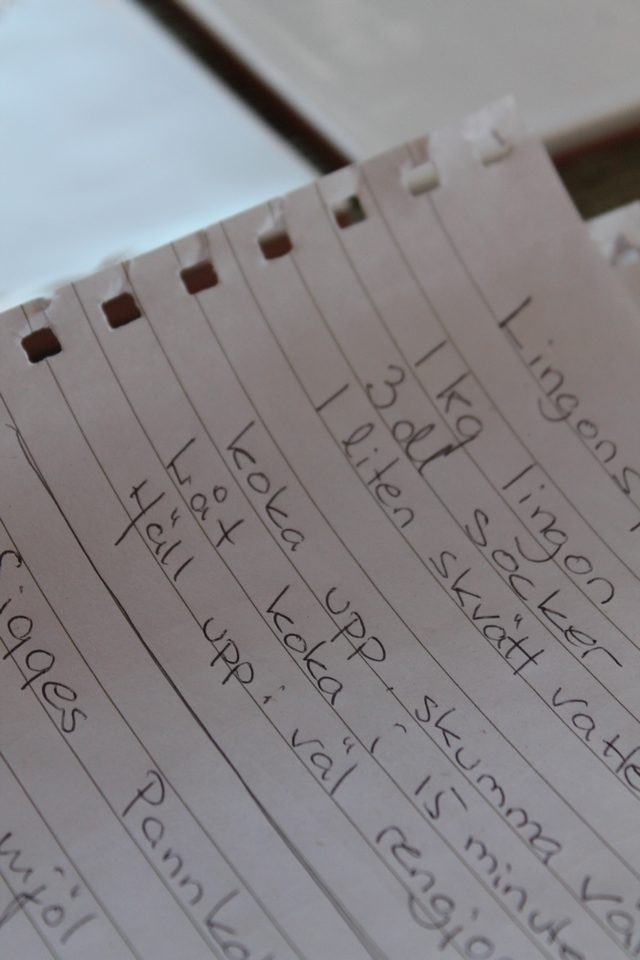 Lingons
1 kg lingon
3 dl socker
1 liten skvätt vatte
koka upp. skumma vä
Låt koka i 15 minute
Häll upp i väl rengjo
Sigges Pannka
mjöl